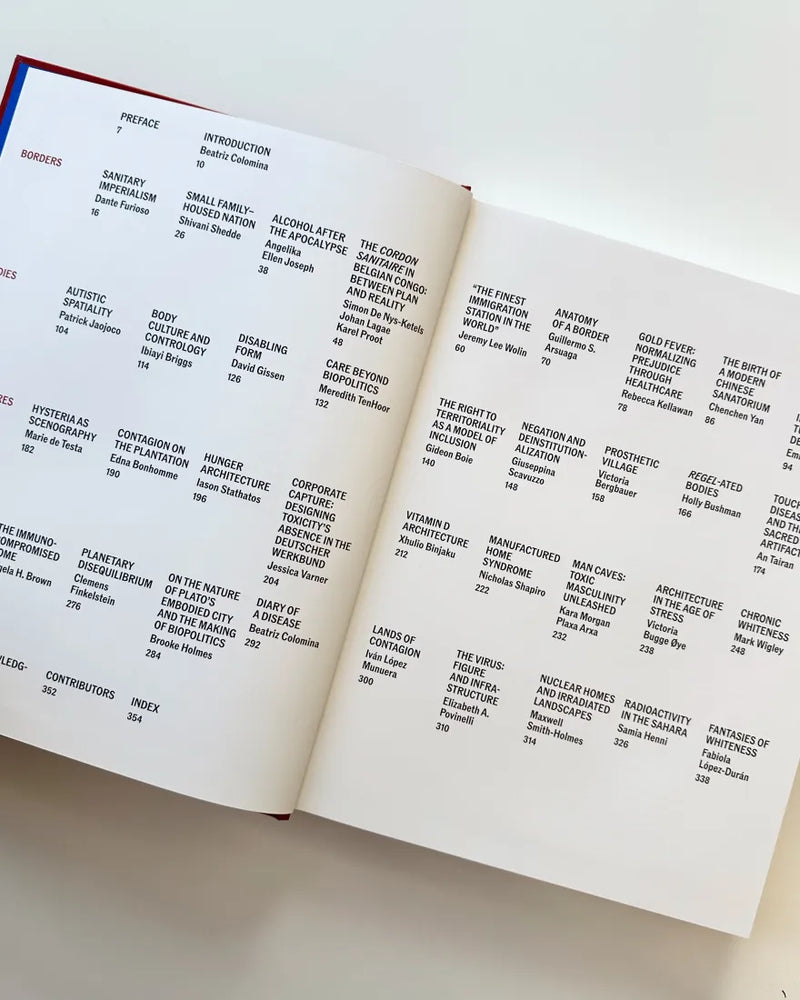 PREFACE
7
INTRODUCTION
Beatriz Colomina
10
BORDERS
SANITARY
IMPERIALISM
Dante Furioso
16
SMALL FAMILY–
HOUSED NATION
Shivani Shedde
26
ALCOHOL AFTER
THE APOCALYPSE
Angelika
Ellen Joseph
38
THE CORDON
SANITAIRE IN
BELGIAN CONGO:
BETWEEN PLAN
AND REALITY
Simon De Nys-Ketels
Johan Lagae
Karel Proot
48
"THE FINEST
IMMIGRATION
STATION IN THE
WORLD"
Jeremy Lee Wolin
60
ANATOMY
OF A BORDER
Guillermo S.
Arsuaga
70
GOLD FEVER:
NORMALIZING
PREJUDICE
THROUGH
HEALTHCARE
Rebecca Kellawan
78
THE BIRTH OF
A MODERN
CHINESE
SANATORIUM
Chenchen Yan
86
94
DIES
AUTISTIC
SPATIALITY
Patrick Jaojoco
104
BODY
CULTURE AND
CONTROLOGY
Ibiayi Briggs
114
DISABLING
FORM
David Gissen
126
CARE BEYOND
BIOPOLITICS
Meredith TenHoor
132
THE RIGHT TO
TERRITORIALITY
AS A MODEL OF
INCLUSION
Gideon Boie
140
NEGATION AND
DEINSTITUTION-
ALIZATION
Giuseppina
Scavuzzo
148
PROSTHETIC
VILLAGE
Victoria
Bergbauer
158
REGEL-ATED
BODIES
Holly Bushman
166
TOUCH
DISEAS
AND TH
SACRED
ARTIFACT
An Tairan
174
RES
HYSTERIA AS
SCENOGRAPHY
Marie de Testa
182
CONTAGION ON
THE PLANTATION
Edna Bonhomme
190
HUNGER
ARCHITECTURE
Iason Stathatos
196
CORPORATE
CAPTURE:
DESIGNING
TOXICITY'S
ABSENCE IN THE
DEUTSCHER
WERKBUND
Jessica Varner
204
VITAMIN D
ARCHITECTURE
Xhulio Binjaku
212
MANUFACTURED
HOME
SYNDROME
Nicholas Shapiro
222
MAN CAVES:
TOXIC
MASCULINITY
UNLEASHED
Kara Morgan
Plaxa Arxa
232
ARCHITECTURE
IN THE AGE OF
STRESS
Victoria
Bugge Øye
238
CHRONIC
WHITENESS
Mark Wigley
248
THE IMMUNO-
OMPROMISED
OME
gela H. Brown
PLANETARY
DISEQUILIBRIUM
Clemens
Finkelstein
276
ON THE NATURE
OF PLATO'S
EMBODIED CITY
AND THE MAKING
OF BIOPOLITICS
Brooke Holmes
284
DIARY OF
A DISEASE
Beatriz Colomina
292
LANDS OF
CONTAGION
Iván López
Munuera
300
THE VIRUS:
FIGURE
AND INFRA-
STRUCTURE
Elizabeth A.
Povinelli
310
NUCLEAR HOMES
AND IRRADIATED
LANDSCAPES
Maxwell
Smith-Holmes
314
RADIOACTIVITY
IN THE SAHARA
Samia Henni
326
FANTASIES OF
WHITENESS
Fabiola
López-Durán
338
LEDG-
CONTRIBUTORS
352
INDEX
354